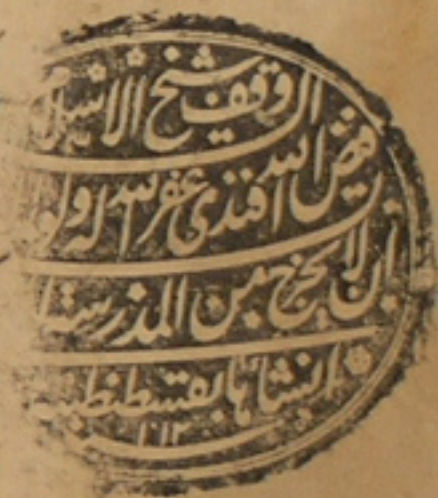 الوقف شيخ الاسلام
فيض الله افندى غفر الله له ولو
بشرط ان لا يخرج من المدرسة
انشاها بقسطنطينية
١١١٢